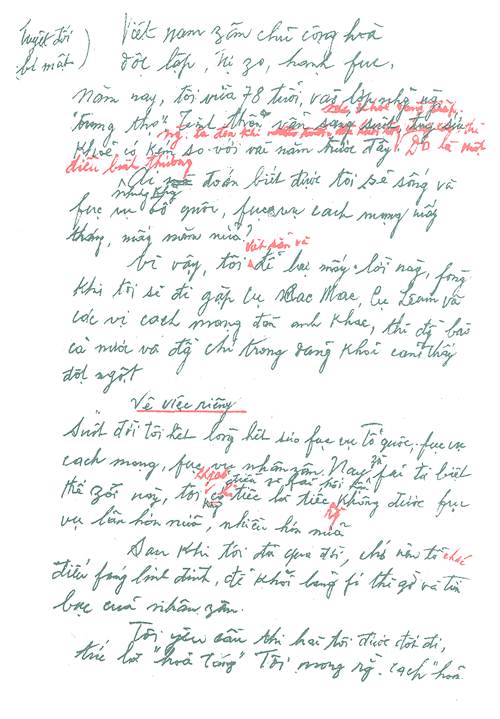 Tuyệt đối
bí mật
Việt nam zân chủ cộng hoà
độc lập, tự zo, hạnh fúc,
Năm nay, tôi vừa 78 tuổi, vào lớp những ng.
"trung thọ" Tinh thần vẫn sáng suốt,
khoẻ có kém so với vài năm trước đây. Đó là một
điều bình thường
Nhưng
Ai mà đoán biết được tôi sẽ sống và
fục vụ Tổ quốc, fục vụ cách mạng mấy
tháng, mấy năm nữa?
viết sẵn và
Vì vậy, tôi để lại mấy lời này, fòng
khi tôi sẽ đi gặp cụ Mac, cụ Lênin và
các vị cách mạng đàn anh khác, thì đg bào
cả nước và đg chí trong đảng khỏi cảm thấy
đột ngột
Về việc riêng
Suốt đời tôi hết lòng hết sức fục vụ Tổ quốc, fục vụ
cách mạng, fục vụ nhân zân. Nay fải từ biệt
thế zới này, tôi không có điều gì fải hối hận
chỉ tiếc là tiếc rg không được fục
vụ lâu hơn nữa, nhiều hơn nữa
Sau khi tôi đã qua đời, chớ nên tổ chức
điếu fúng linh đình, để khỏi lãng fí thì zờ và tiền
bạc của nhân zân.
Tôi yêu cầu thi hài tôi được đốt đi,
tức là "hoả táng" Tôi mong rg. cách "hoả